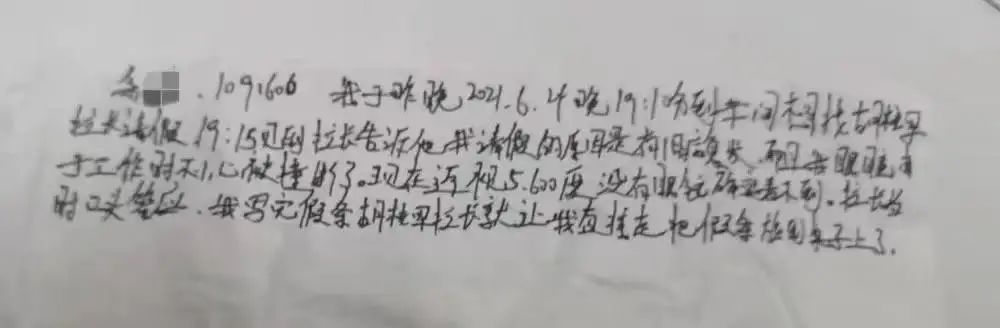 .109,600 我于昨晚2021.6.4晚19:10分到车间相找胡桂军
拉长请假19:15见到拉长告诉他,我请假的原因是有眼镜
于工作时不小心被撞断了.现在近视5.600度没有眼镜确实看不到。拉长当
时口头答应.我写完假条胡桂军拉长就让我直接走把假条放到桌子上了.